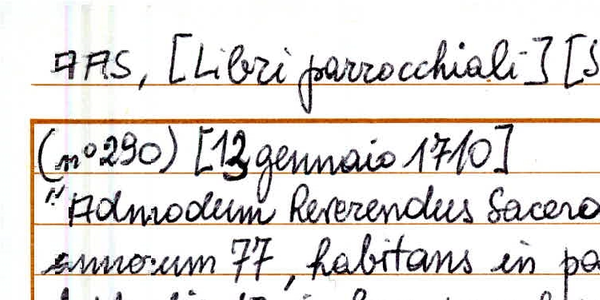 AAS, [Libri parrocchiali] [S
(nº 290) [13 gennaio 1710]
"Admodum Reverendus Sacerd
annorum 77, habitans in pa